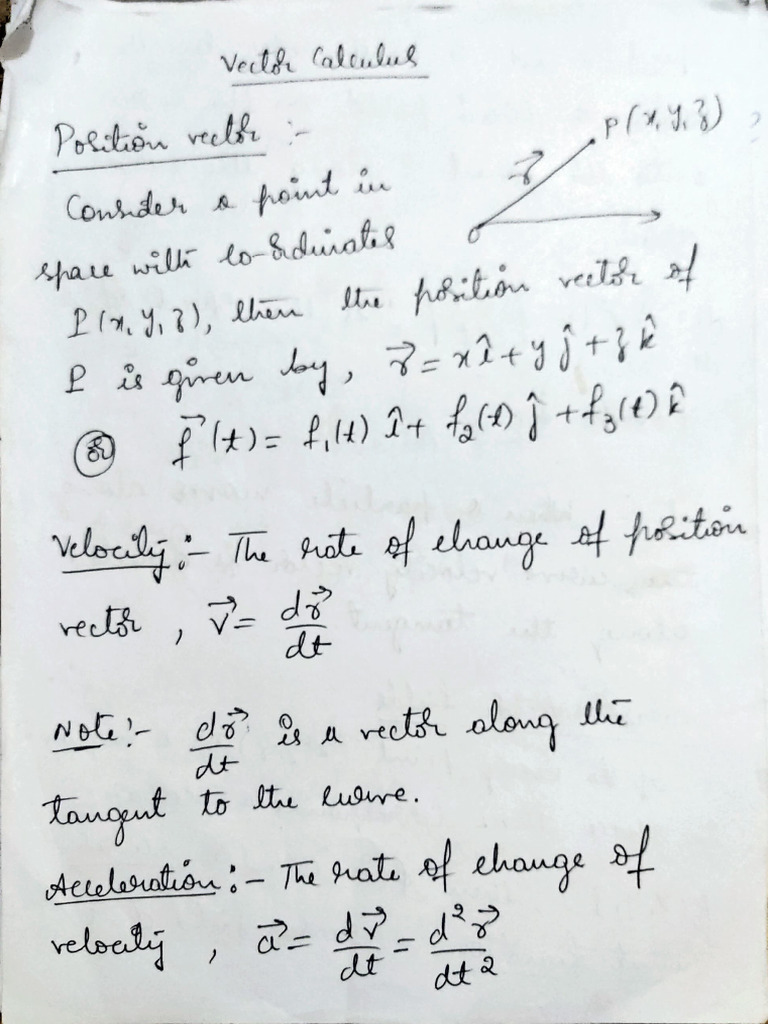 Vector Calculus
Position vector :-
P(x, y, z)
r⃗
O
Consider a point in
space with co-ordinates
P(x, y, z), then the position vector of
P is given by, r⃗ = xî + yĵ + zk̂
(or) f⃗(t) = f₁(t) î + f₂(t) ĵ + f₃(t) k̂
Velocity :- The rate of change of position
vector, v⃗ = dr⃗/dt
Note :- dr⃗/dt is a vector along the
tangent to the curve.
Acceleration :- The rate of change of
velocity, a⃗ = dv⃗/dt = d²r⃗/dt²